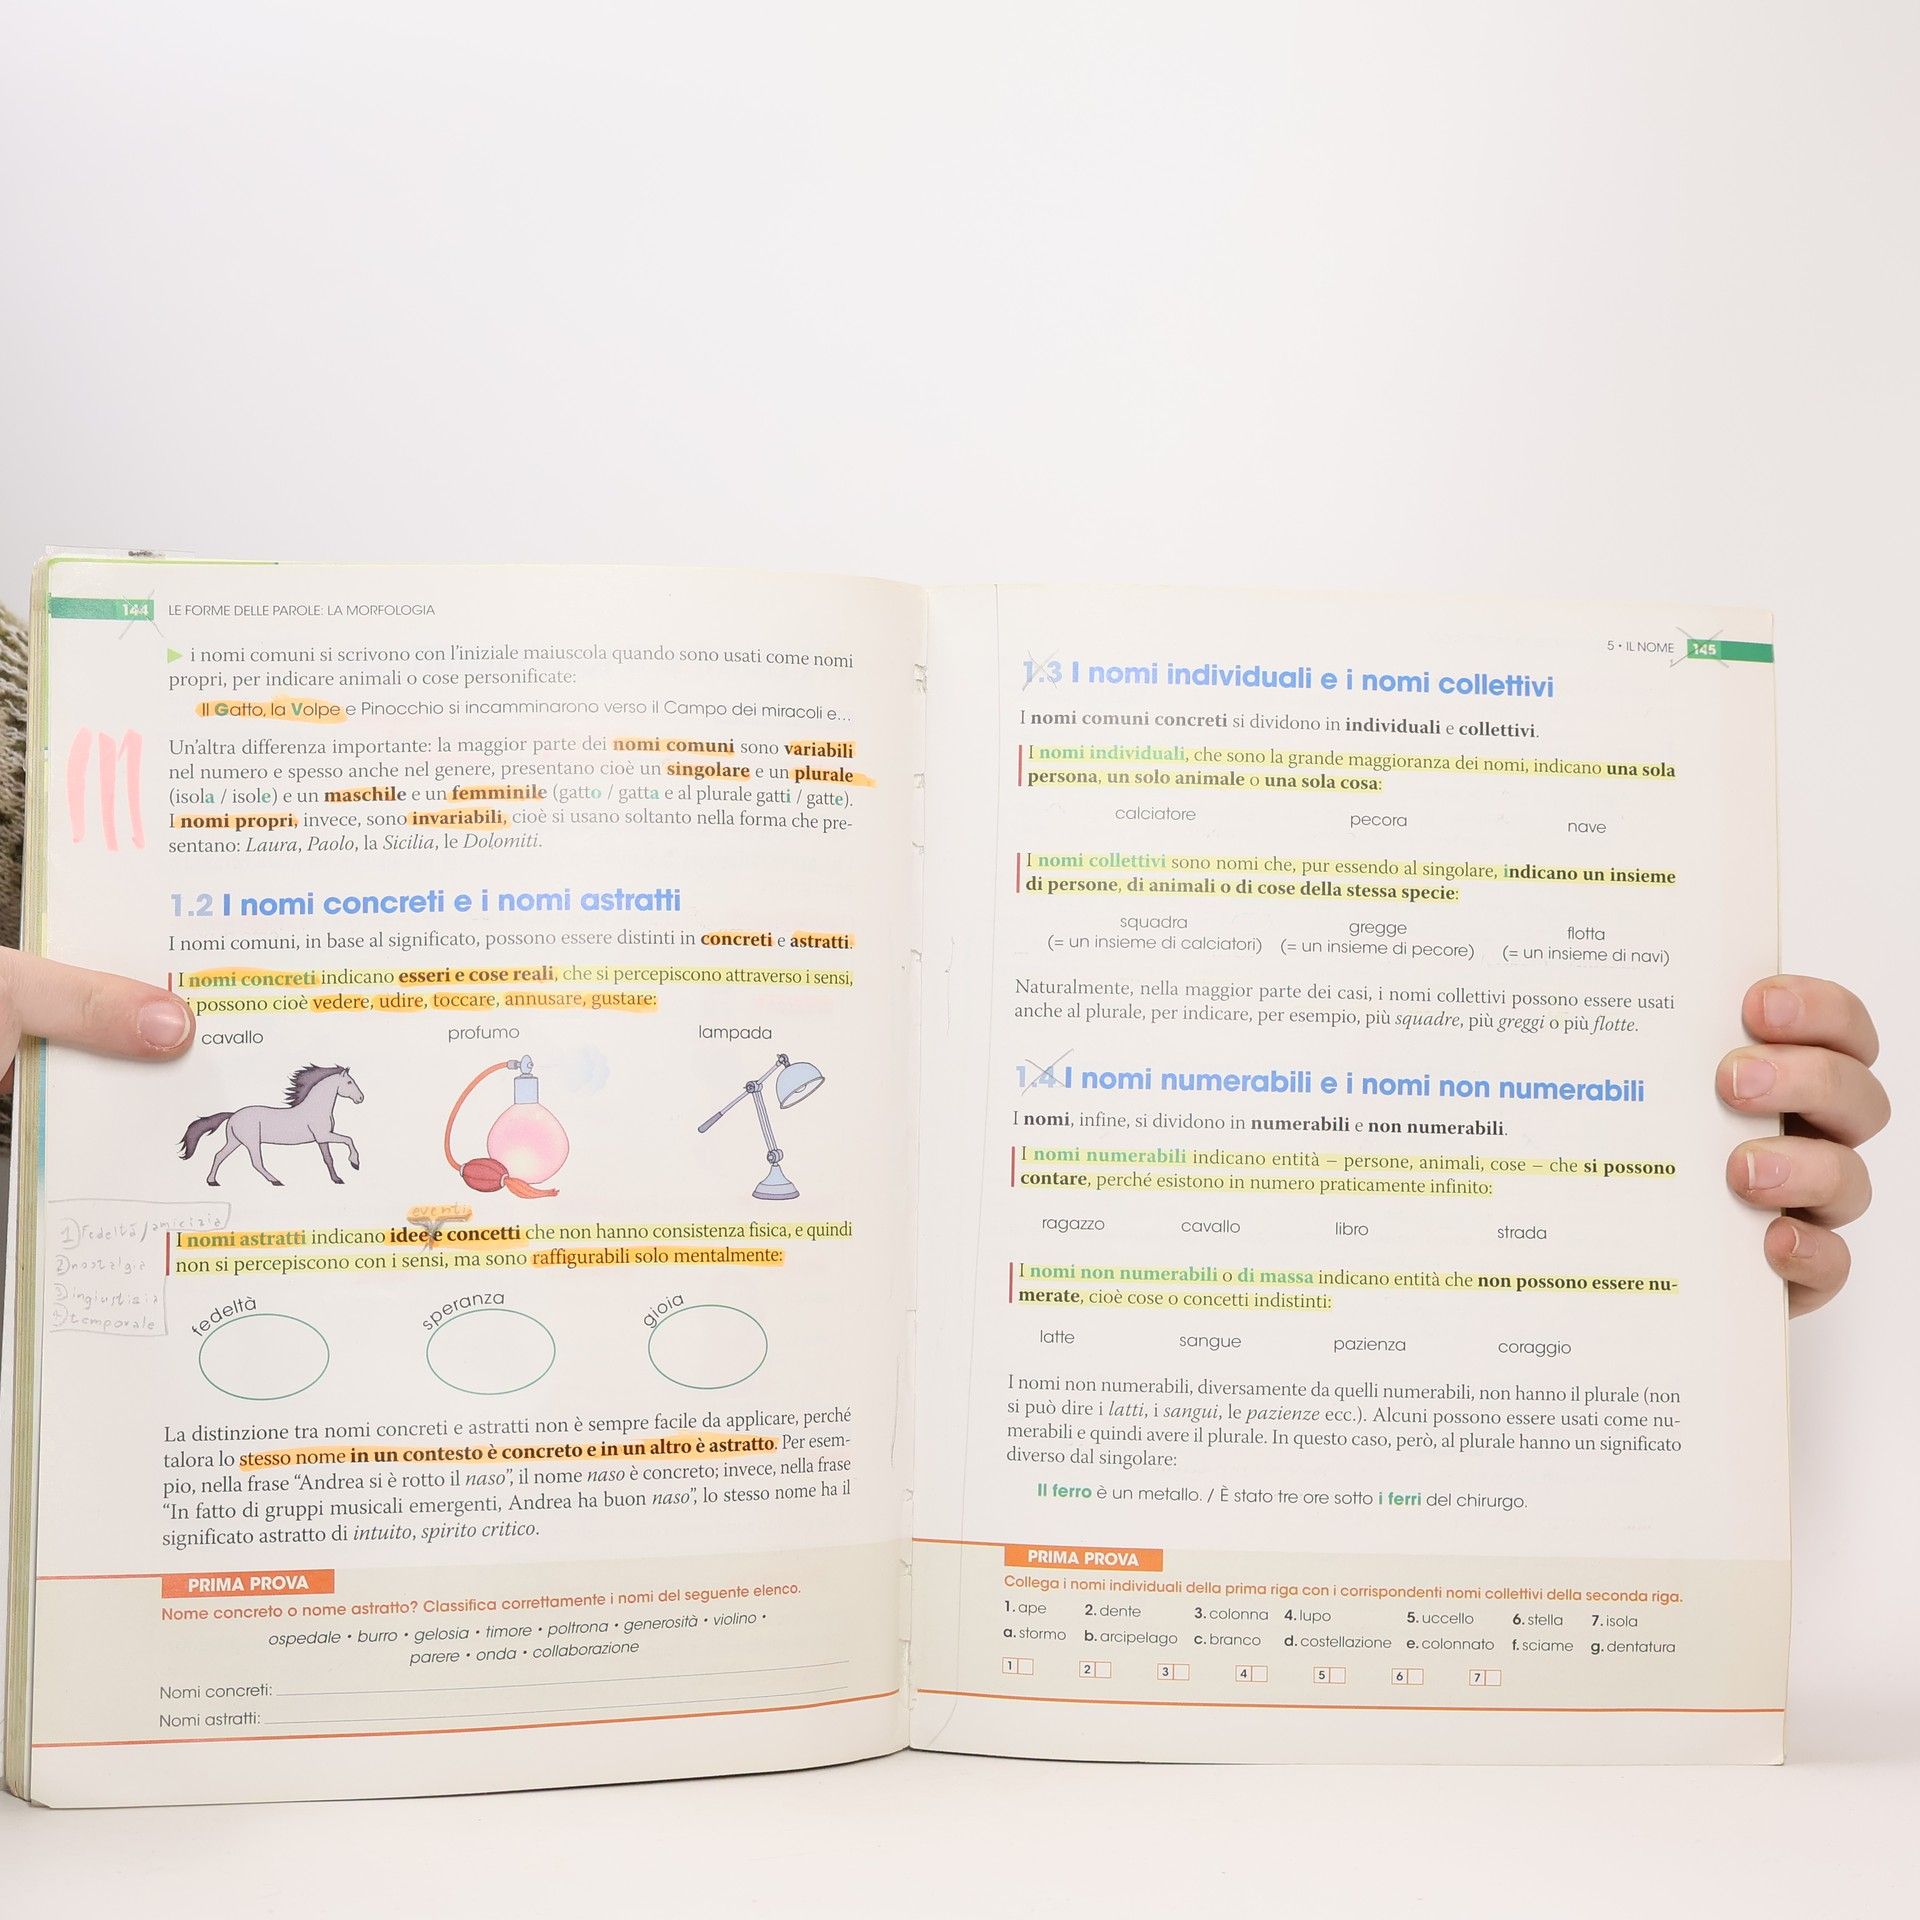 144 LE FORME DELLE PAROLE: LA MORFOLOGIA
i nomi comuni si scrivono con l'iniziale maiuscola quando sono usati come nomi
propri, per indicare animali o cose personificate:
Il Gatto, la Volpe e Pinocchio si incamminarono verso il Campo dei miracoli e...
Un'altra differenza importante: la maggior parte dei nomi comuni sono variabili
nel numero e spesso anche nel genere, presentano cioè un singolare e un plurale
(isola / isole) e un maschile e un femminile (gatto / gatta e al plurale gatti / gatte).
I nomi propri, invece, sono invariabili, cioè si usano soltanto nella forma che pre-
sentano: Laura, Paolo, la Sicilia, le Dolomiti.
1.2 I nomi concreti e i nomi astratti
I nomi comuni, in base al significato, possono essere distinti in concreti e astratti.
I nomi concreti indicano esseri e cose reali, che si percepiscono attraverso i sensi,
i possono cioè vedere, udire, toccare, annusare, gustare:
cavallo profumo lampada
eventi
1) Fedeltà / amicizia
2) nostalgia
3) ingiustizia
4) temporale
I nomi astratti indicano idee e concetti che non hanno consistenza fisica, e quindi
non si percepiscono con i sensi, ma sono raffigurabili solo mentalmente:
fedeltà speranza gioia
La distinzione tra nomi concreti e astratti non è sempre facile da applicare, perché
talora lo stesso nome in un contesto è concreto e in un altro è astratto. Per esem-
pio, nella frase “Andrea si è rotto il naso”, il nome naso è concreto; invece, nella frase
“In fatto di gruppi musicali emergenti, Andrea ha buon naso”, lo stesso nome ha il
significato astratto di intuito, spirito critico.
PRIMA PROVA
Nome concreto o nome astratto? Classifica correttamente i nomi del seguente elenco.
ospedale • burro • gelosia • timore • poltrona • generosità • violino •
parere • onda • collaborazione
Nomi concreti:
Nomi astratti:
5 • IL NOME 145
1.3 I nomi individuali e i nomi collettivi
I nomi comuni concreti si dividono in individuali e collettivi.
I nomi individuali, che sono la grande maggioranza dei nomi, indicano una sola
persona, un solo animale o una sola cosa:
calciatore pecora nave
I nomi collettivi sono nomi che, pur essendo al singolare, indicano un insieme
di persone, di animali o di cose della stessa specie:
squadra gregge flotta
(= un insieme di calciatori) (= un insieme di pecore) (= un insieme di navi)
Naturalmente, nella maggior parte dei casi, i nomi collettivi possono essere usati
anche al plurale, per indicare, per esempio, più squadre, più greggi o più flotte.
1.4 I nomi numerabili e i nomi non numerabili
I nomi, infine, si dividono in numerabili e non numerabili.
I nomi numerabili indicano entità – persone, animali, cose – che si possono
contare, perché esistono in numero praticamente infinito:
ragazzo cavallo libro strada
I nomi non numerabili o di massa indicano entità che non possono essere nu-
merate, cioè cose o concetti indistinti:
latte sangue pazienza coraggio
I nomi non numerabili, diversamente da quelli numerabili, non hanno il plurale (non
si può dire i latti, i sangui, le pazienze ecc.). Alcuni possono essere usati come nu-
merabili e quindi avere il plurale. In questo caso, però, al plurale hanno un significato
diverso dal singolare:
Il ferro è un metallo. / È stato tre ore sotto i ferri del chirurgo.
PRIMA PROVA
Collega i nomi individuali della prima riga con i corrispondenti nomi collettivi della seconda riga.
1. ape 2. dente 3. colonna 4. lupo 5. uccello 6. stella 7. isola
a. stormo b. arcipelago c. branco d. costellazione e. colonnato f. sciame g. dentatura
1 2 3 4 5 6 7